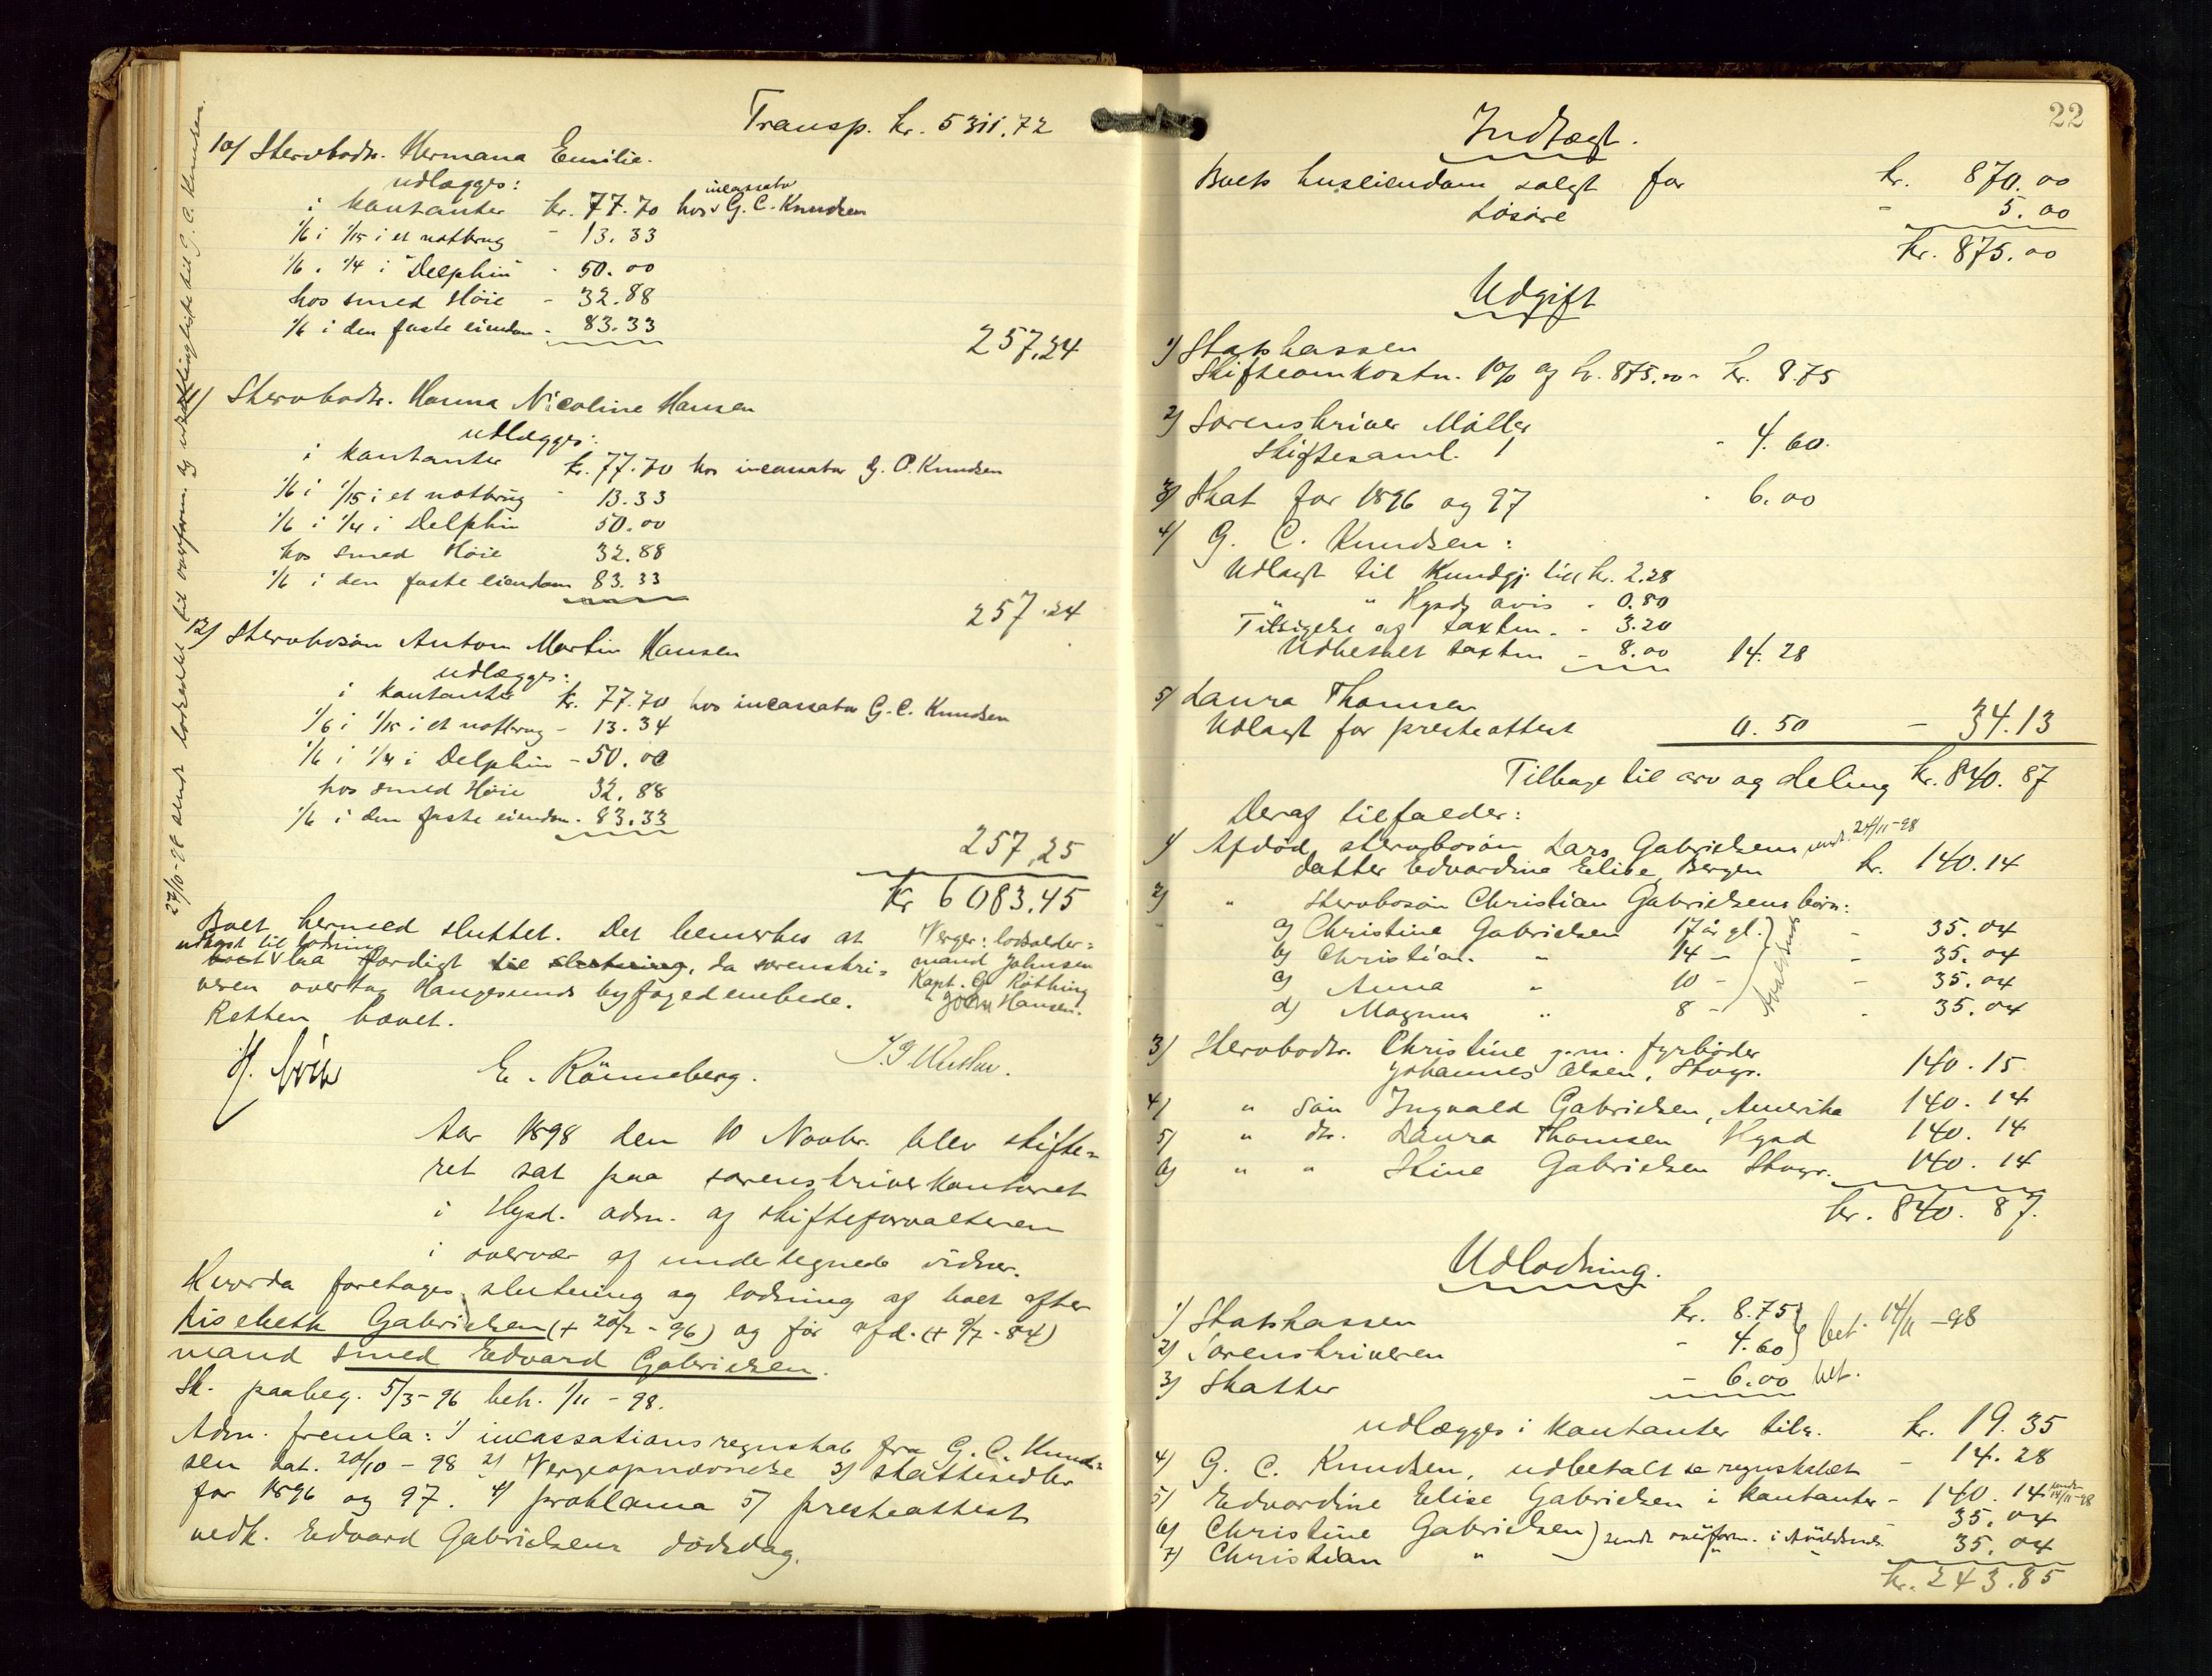 Transp. kr. 5311.72
10/ Stervbodtr. Hermana Emilie.
udlægges:
incassator
i kontanter kr. 77.70 hos G. C. Knudsen
1/6 i 1/15 i et notbrug - 13.33
1/6 i 1/4 i "Delphin" - 50.00
hos smed Höie - 32.88
1/6 i den faste eiendom - 83.33
257,24
11/ Stervbodtr. Hanna Nicoline Hansen
udlægges:
i kontanter kr. 77.70 hos incassator G. C. Knudsen
1/6 i 1/15 i et notbrug - 13.33
1/6 i 1/4 i Delphin 50.00
hos smed Höie 32.88
1/6 i den faste eiendom 83.33
257.24
12) Stervbosön Anton Martin Hansen
udlægges:
i kontanter kr. 77.70 hos incassator G. C. Knudsen
1/6 i 1/15 i et notbrug - 13.34
1/6 i 1/4 i Delphin - 50.00
hos smed Höie 32.88
1/6 i den faste eiendom - 83.33
257,25
kr 6083.45
27/10-98 sendt lodseddel til overform. og udskrift G. C. Knudsen.
Boet hermed sluttet. Det bemerkes at
udlagt til lodning
boet laa færdigt til slutning, da sorenskri=
veren overtog Haugesunds byfogedembede.
Retten hævet.
Verger: lodsolder=
mand Johnsen
Kapt. G Röthing
" John Hansen.
E. Rönneberg.
Aar 1898 den 10 Novbr. blev skifte=
ret sat paa sorenskriverkontoret
i Hgsd. adm. af skifteforvalteren
i overvær af undertegnede vidner.
Hvorda foretages slutning og lodning af boet efter
Lisebeth Gabrielsen (+ 20/2 - 96) og før afd. (+ 9/7 - 84)
mand smed Edvard Gabrielsen.
Sk. paabeg. 5/3-96 beh. 1/11 - 98.
Adm. fremla: 1) incassationsregnskab fra G. C. Knud=
sen dat. 20/10 - 98 2) Vergeopnævnelse 3) skattesedler
for 1896 og 97. 4) proklama 5) presteattest
vedk. Edvard Gabrielsens dödsdag.
22
Indtægt.
Boets huseiendom solgt for kr. 870.00
Lösöre - 5.00
kr. 875.00
Udgift
1) Statskassen
Skifteomkostn. 1% af kr. 875.00 - kr. 8.75
2) Sorenskriver Möller
Skiftesaml. 1 - 4.60.
3) Skat for 1896 og 97 - 6.00
4) G. C. Knudsen:
Udlagt til Kundgj. tid kr. 2.28
" " Hgsds avis - 0.80
Tilsigelse af taxtm. - 3.20
Udbetalt taxtm - 8.00 14.28
5) Laura Thomsen
Udlagt for presteattest 0.50 - 34.13
Tilbage til arv og deling kr. 840.87
Deraf tilfalder:
1) Afdöd stervbosön Lars Gabrielsens sendt 24/11-98
datter Edvardine Elise, Bergen kr. 140.14
2) " Stervbosön Christian Gabrielsens börn:
a) Christine Gabrielsen 17 år gl. - 35.04
b) Christian " 14 - - 35.04
c) Anna " 10 - - 35.04
d) Magnus " 8 - - 35.04
Avaldsnes
3) Stervbodtr. Christine g.m. fyrböder
Johannes Olsen, Stvgr. 140.15
4) " sön Ingvald Gabrielsen, Amerika 140.14
5) " dtr. Laura Thomsen Hgsd 140.14
6) " " Stine Gabrielsen Stvgr. 140.14
kr. 840.87.
Udlodning.
1) Statskassen kr. 8.75
2) Sorenskriveren - 4.60
bet. 14/11 - 98
3) Skatter - 6.00 bet.
udlægges i kontanter tils. kr. 19.35
4) G. C. Knudsen, udbetalt se regnskabet - 14.28
5) Edvardine Elise Gabrielsen i kontanter - 140.14 sendt 14/11-98
6) Christine Gabrielsen 35.04
sendt overform. i Avaldsnes
7) Christian " 35.04
kr. 243.85